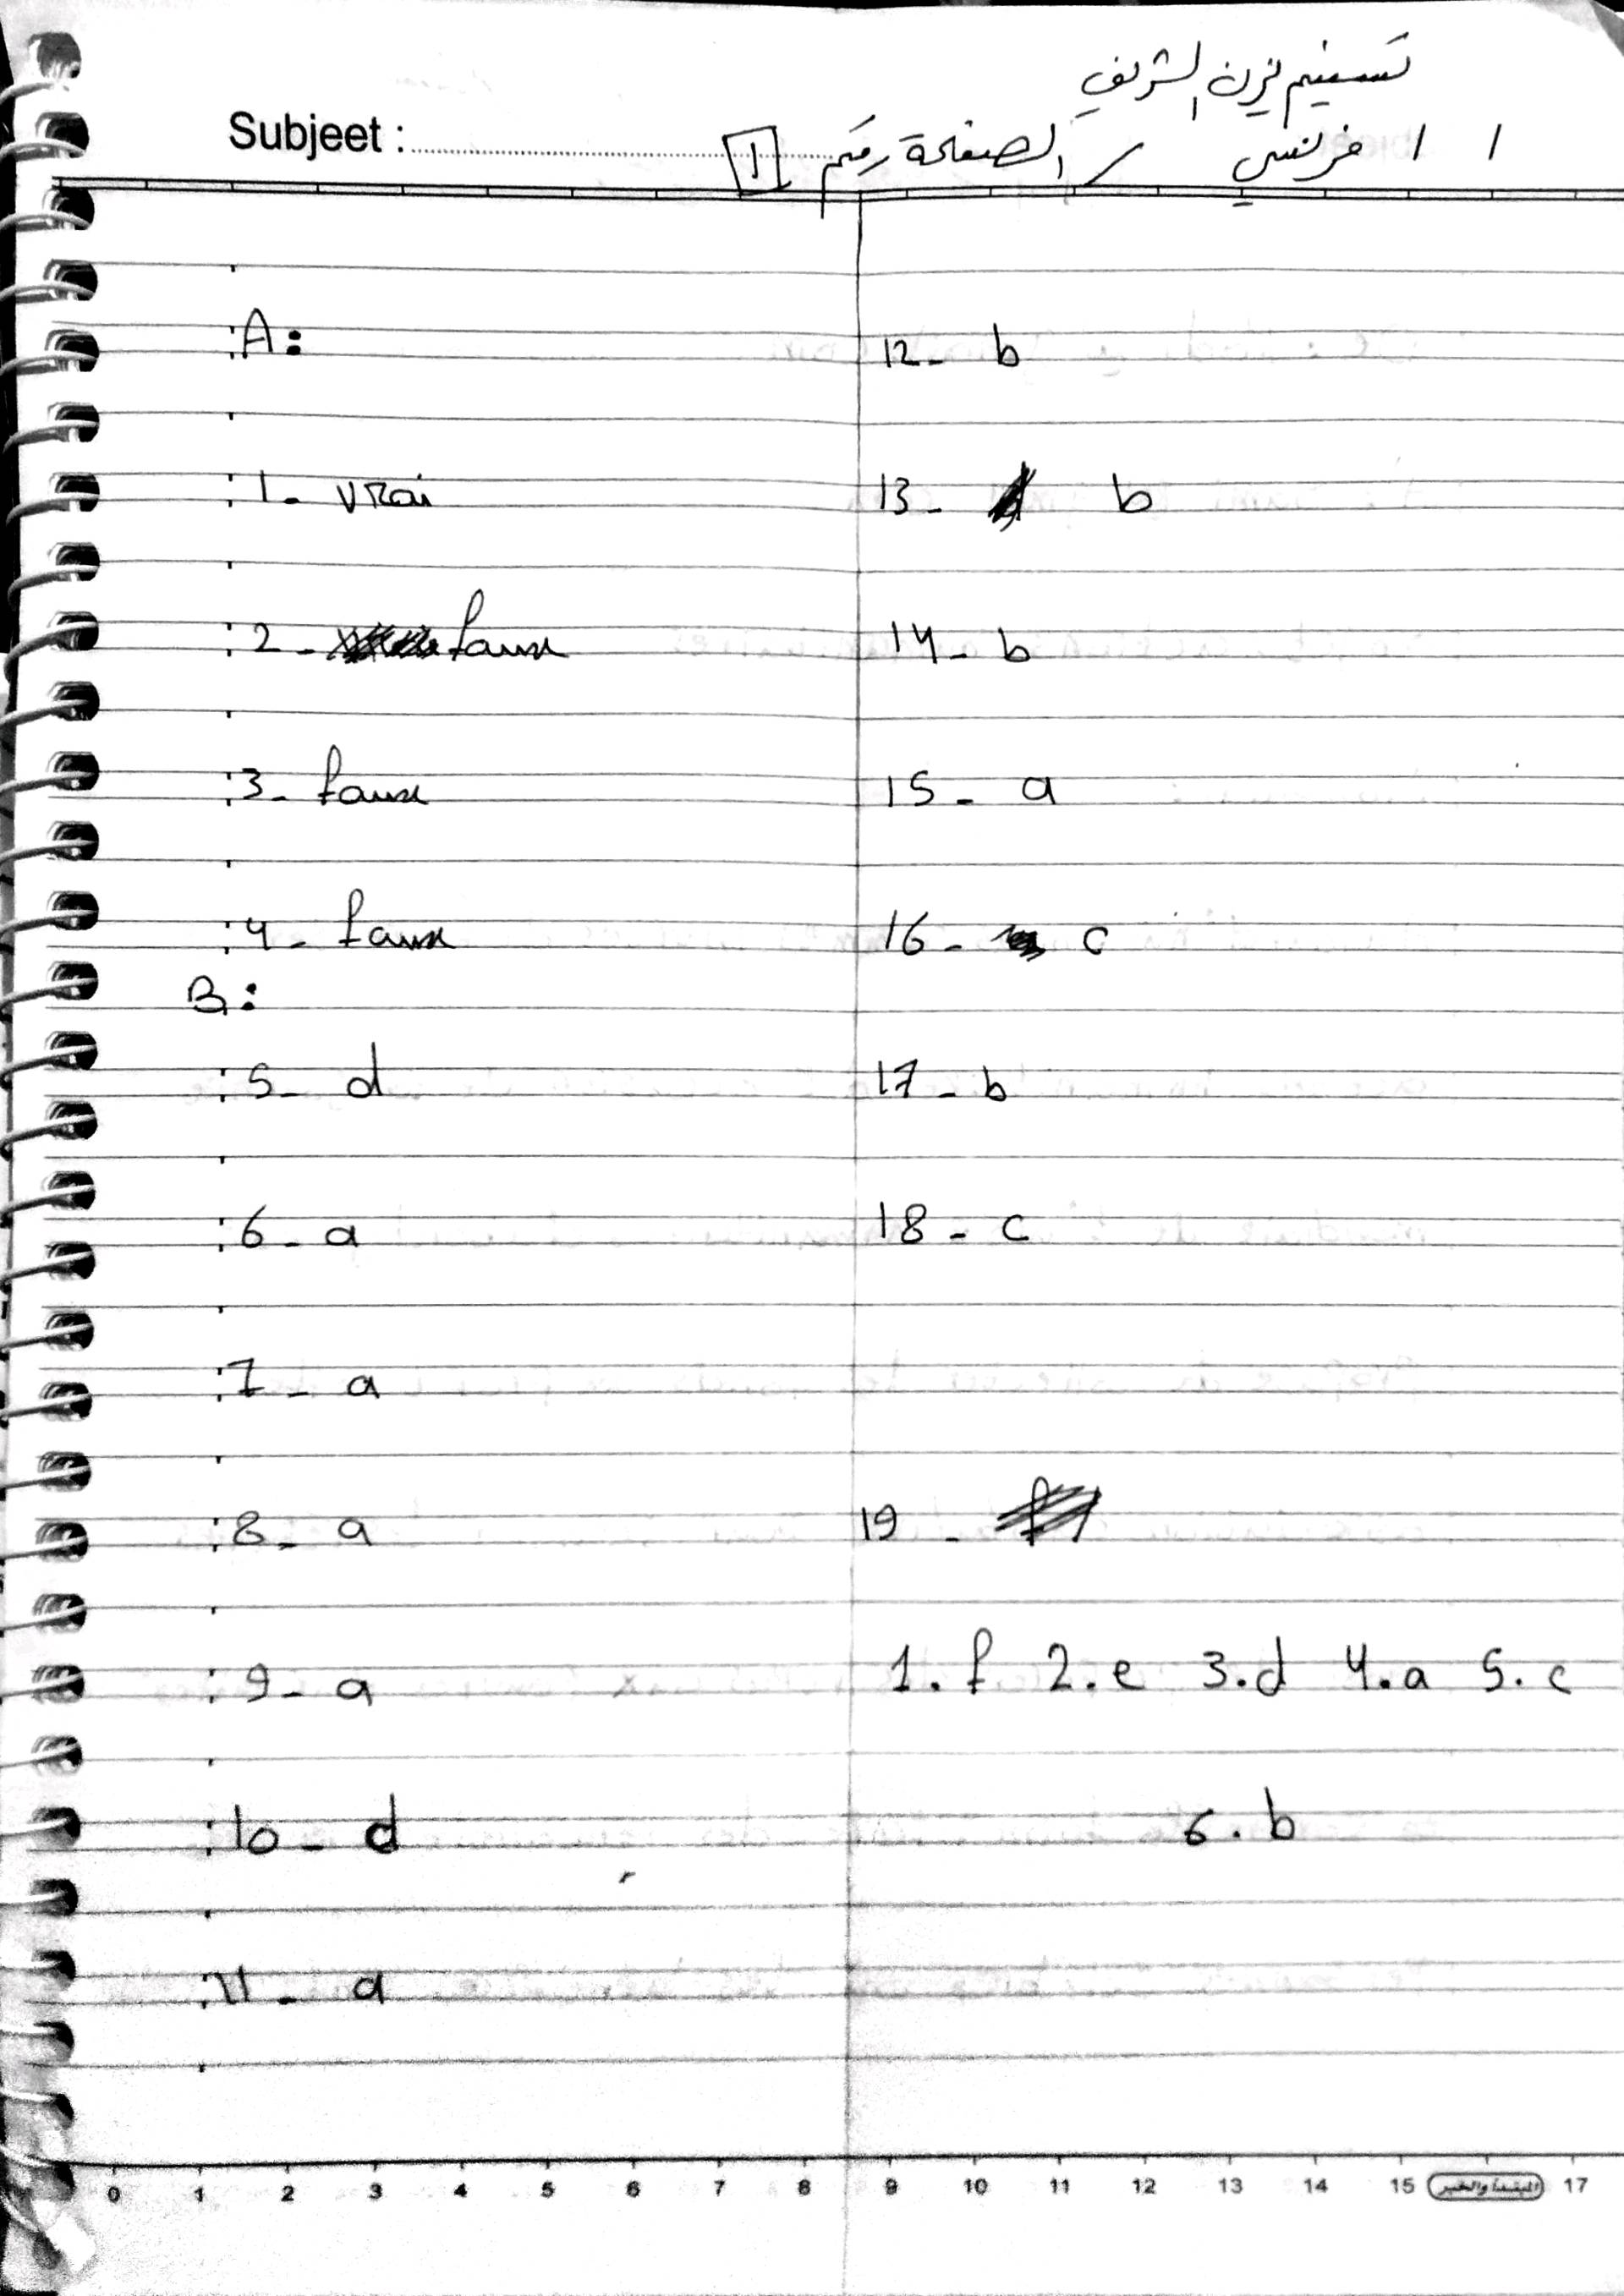 تسنيم يزن الشريف
Subjeet :
/ / فرنسي / الصفحة رقم 1
A:
1- vrai
2- faux
3- faux
4- faux
B:
5- d
6- a
7- a
8- a
9- a
10- d
11- a
12- b
13- b
14- b
15- a
16- c
17- b
18- c
19 -
1.f 2.e 3.d 4.a 5.c
6.b
0 1 2 3 4 5 6 7 8 9 10 11 12 13 14 15 المبتدأ والخبر 17